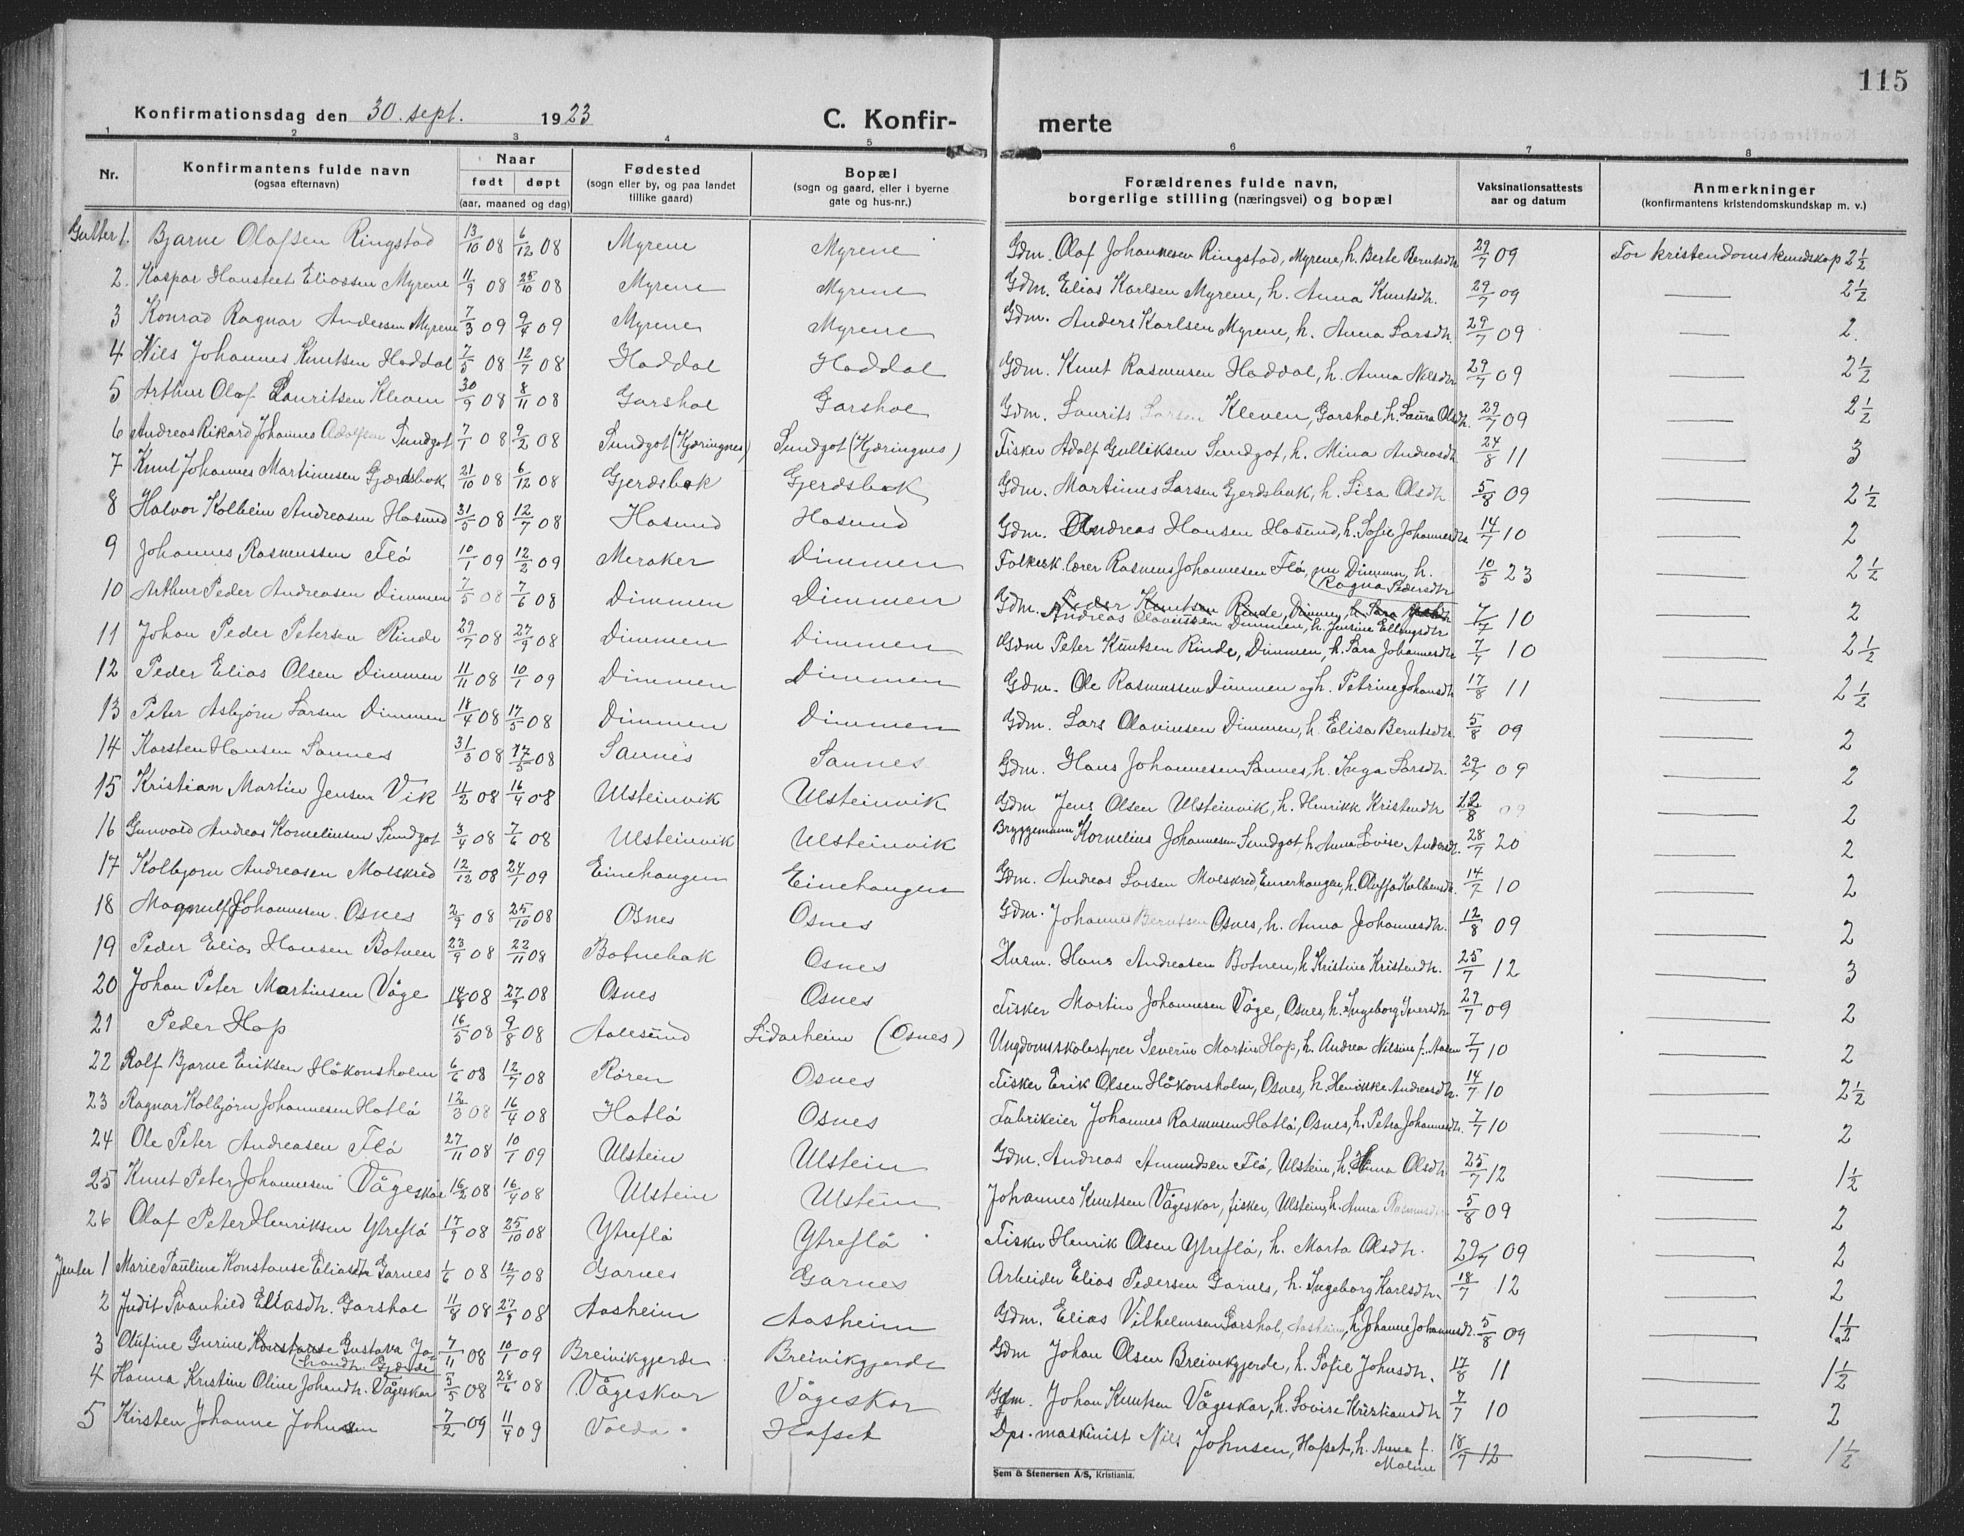 115
Konfirmationsdag den 30. sept. 1923 C. Konfir- merte
1 2 3 4 5 6 7 8
Nr. Konfirmantens fulde navn (ogsaa efternavn) Naar født døpt (aar, maaned og dag) Fødested (sogn eller by, og paa landet tillike gaard) Bopæl (sogn og gaard, eller i byerne gate og hus-nr.) Forældrenes fulde navn, borgerlige stilling (næringsvei) og bopæl Vaksinationsattests aar og datum Anmerkninger (konfirmantens kristendomskundskap m. v.)
Gutter 1. Bjarne Olafsen Ringstad 13/10 08 6/12 08 Myrene Myrene Gdm. Olaf Johannesen Ringstad, Myrene, h. Berte Berntsdtr 29/7 09 For kristendomskundskap 2½
2. Kaspar Hansteet Eliassen Myrene 11/9 08 25/10 08 Myrene Myrene Gdm. Elias Karlsen Myrene, h. Anna Knutsdtr. 29/7 09 — 2½
3 Konrad Ragnar Andersen Myrene 7/3 09 9/4 09 Myrene Myrene Gdm. Anders Karlsen Myrene, h. Anna Larsdtr. 29/7 09 — 2.
4 Nils Johannes Knutsen Haddal 7/5 08 12/7 08 Haddal Haddal Gdm. Knut Rasmusen Haddal, h. Anna Nilsdtr 29/7 09 — 2½
5 Arthur Olaf Lauritsen Kleven 30/9 08 8/11 08 Garshol Garshol Gdm. Laurits Larsen Kleven, Garshol, h. Laura Olsdtr. 29/7 09 — 2½
6 Andreas Rikard Johannes Adolfsen Sundgot 7/1 08 9/2 08 Sundgot (Kjæringnes) Sundgot (Kjæringnes) Fisker Adolf Gulliksen Sundgot, h. Mina Andreasdtr 24/8 11 — 3
7 Knut Johannes Martinusen Gjærdsbak 21/10 08 6/12 08 Gjerdsbak Gjerdsbak Gdm. Martinus Larsen Gjerdsbak, h. Lisa Olsdtr 5/8 09 — 2½
8 Halvor Kolbein Andreasen Hasund 31/5 08 12/7 08 Hasund Hasund Gdm. Andreas Hansen Hasund, h. Sofie Johannesdtr 14/7 10 — 2
9 Johannes Rasmussen Flø 10/1 09 12/2 09 Meraker Dimmen Folkesk.lærer Rasmus Johannesen Flø, nu Dimmen, h. Ragna Pedersdtr 10/5 23 — 2½
10 Arthur Peder Andreasen Dimmen 7/5 08 7/6 08 Dimmen Dimmen Gdm. Peder Knutsen Rinde, Dimmen, h. Sara Andreas Olavussen Dimmen, h. Jensine Ellingsdtr 7/7 10 — 2
11 Johan Peder Petersen Rinde 29/7 08 27/9 08 Dimmen Dimmen Gdm Peter Knutsen Rinde, Dimmen, h. Sara Johannesdtr 7/7 10 — 2½
12 Peder Elias Olsen Dimmen 11/11 08 10/1 09 Dimmen Dimmen Gdm. Ole Rasmussen Dimmen og h. Petrine Johansdtr 17/8 11 — 2½
13 Peter Asbjørn Larsen Dimmen 18/4 08 17/5 08 Dimmen Dimmen Gdm. Lars Olavinsen Dimmen, h. Elisa Berntsdtr. 5/8 09 — 2
14 Karsten Hansen Sannes 31/3 08 17/5 08 Sannes Sannes Gdm. Hans Johannesen Sannes, h. Inga Larsdtr. 29/7 09 — 2
15 Kristian Martin Jensen Vik 11/2 08 16/4 08 Ulsteinvik Ulsteinvik Gdm Jens Olsen Ulsteinvik, h. Henrikk Kristendtr 12/8 09 — 2
16 Gunvald Andreas Korneliusen Sundgot 3/4 08 7/6 08 Ulsteinvik Ulsteinvik Bryggemann Kornelius Johannesen Sundgot h. Anna Lovise Andersdtr. 28/7 20 — 2
17 Kolbjørn Andreasen Molskred 12/12 08 24/1 09 Einehaugen Einehaugen Gdm. Andreas Larsen Molskred, Einerhaugen, h. Oluffa Kolbensdtr. 14/7 10 — 2
18 Magnulf Johannesen Osnes 2/9 08 25/10 08 Osnes Osnes Gdm. Johannes Berntsen Osnes, h. Anna Johannesdtr. 12/8 09 — 2
19 Peder Elias Hansen Botnen 23/9 08 22/11 08 Botnebak Osnes Husm. Hans Andreasen Botnen, h Kristine Kristendtr. 25/7 12 — 3
20 Johan Peter Martinsen Våge 14/8 08 27/9 08 Osnes Osnes Fisker Martin Johannesen Våge, Osnes, h. Ingeborg Iversdtr 29/7 09 — 2
21 Peder Hop 16/5 08 9/8 08 Aalesund Lidarheim (Osnes) Ungdomsskolestyrer Severin Martin Hop, h. Andrea Nilsine f. Aasen 7/7 10 — 2
22 Rolf Bjarne Eriksen Håkonsholm 6/6 08 12/7 08 Røren Osnes Fisker Erik Olsen Håkonsholm, Osnes, h. Henrikke Andreasdtr. 14/7 10 — 2½
23 Ragnar Kolbjørn Johannesen Hatlø 12/3 08 16/4 08 Hatlø Osnes Fabrikeier Johannes Rasmusen Hatlø, Osnes, h. Petra Johannesdtr. 7/7 10 — 2
24 Ole Peter Andreasen Flø 27/11 08 10/1 09 Ulstein Ulstein Gdm. Andreas Amundsen Flø, Ulstein, h. Anna Olsdtr 25/7 12 — 1½
25 Knut Peter Johannesen Vågeskar 16/2 08 16/4 08 Ulstein Ulstein Johannes Knutsen Vågeskar, fisker, Ulstein, h. Anna Rasmusdtr 5/8 09 — 2
26 Olaf Peter Henriksen Ytreflø 17/9 08 25/10 08 Ytreflø Ytreflø Fisker Henrik Olsen Ytreflø, h. Marta Olsdtr. 29/7 09 — 2
Jenter 1 Marie Pauline Konstanse Eliasdtr Garnes 1/6 08 12/7 08 Garnes Garnes Arbeider Elias Pedersen Garnes, h. Ingeborg Karlsdtr. 18/7 12 — 2
2 Judit Svanhild Eliasdtr. Garshol 11/8 08 27/9 08 Aasheim Aasheim Gdm. Elias Vilhelmsen Garshol, Aasheim, h. Johanne Johannesdtr. 5/8 09 — 1½
3 Olufine Gurine Konstanse Gustava Johansdtr. Gjerde 7/11 08 10/1 09 Breivikgjerde Breivikgjerde Gdm Johan Olsen Breivikgjerde, h. Sofie Johnsdtr. 17/8 11 — 1½
4 Hanna Kristine Oline Johandtr. Vågeskar 3/5 08 28/6 08 Vågeskar Vågeskar Gdm. Johan Knutsen Vågeskar, h. Lovise Kristiansdtr 7/7 10 — 2
5 Kirsten Johanne Johnsen 7/2 09 11/4 09 Volda Hafset Dps. maskinist Nils Johnsen, Hafset, h. Anna f. Malme 18/7 12 — 1½
Sem & Stenersen A/S, Kristiania.